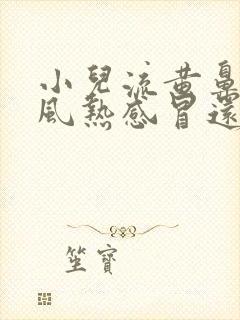 小兒流黃鼻
風熱感冒還
笙寶